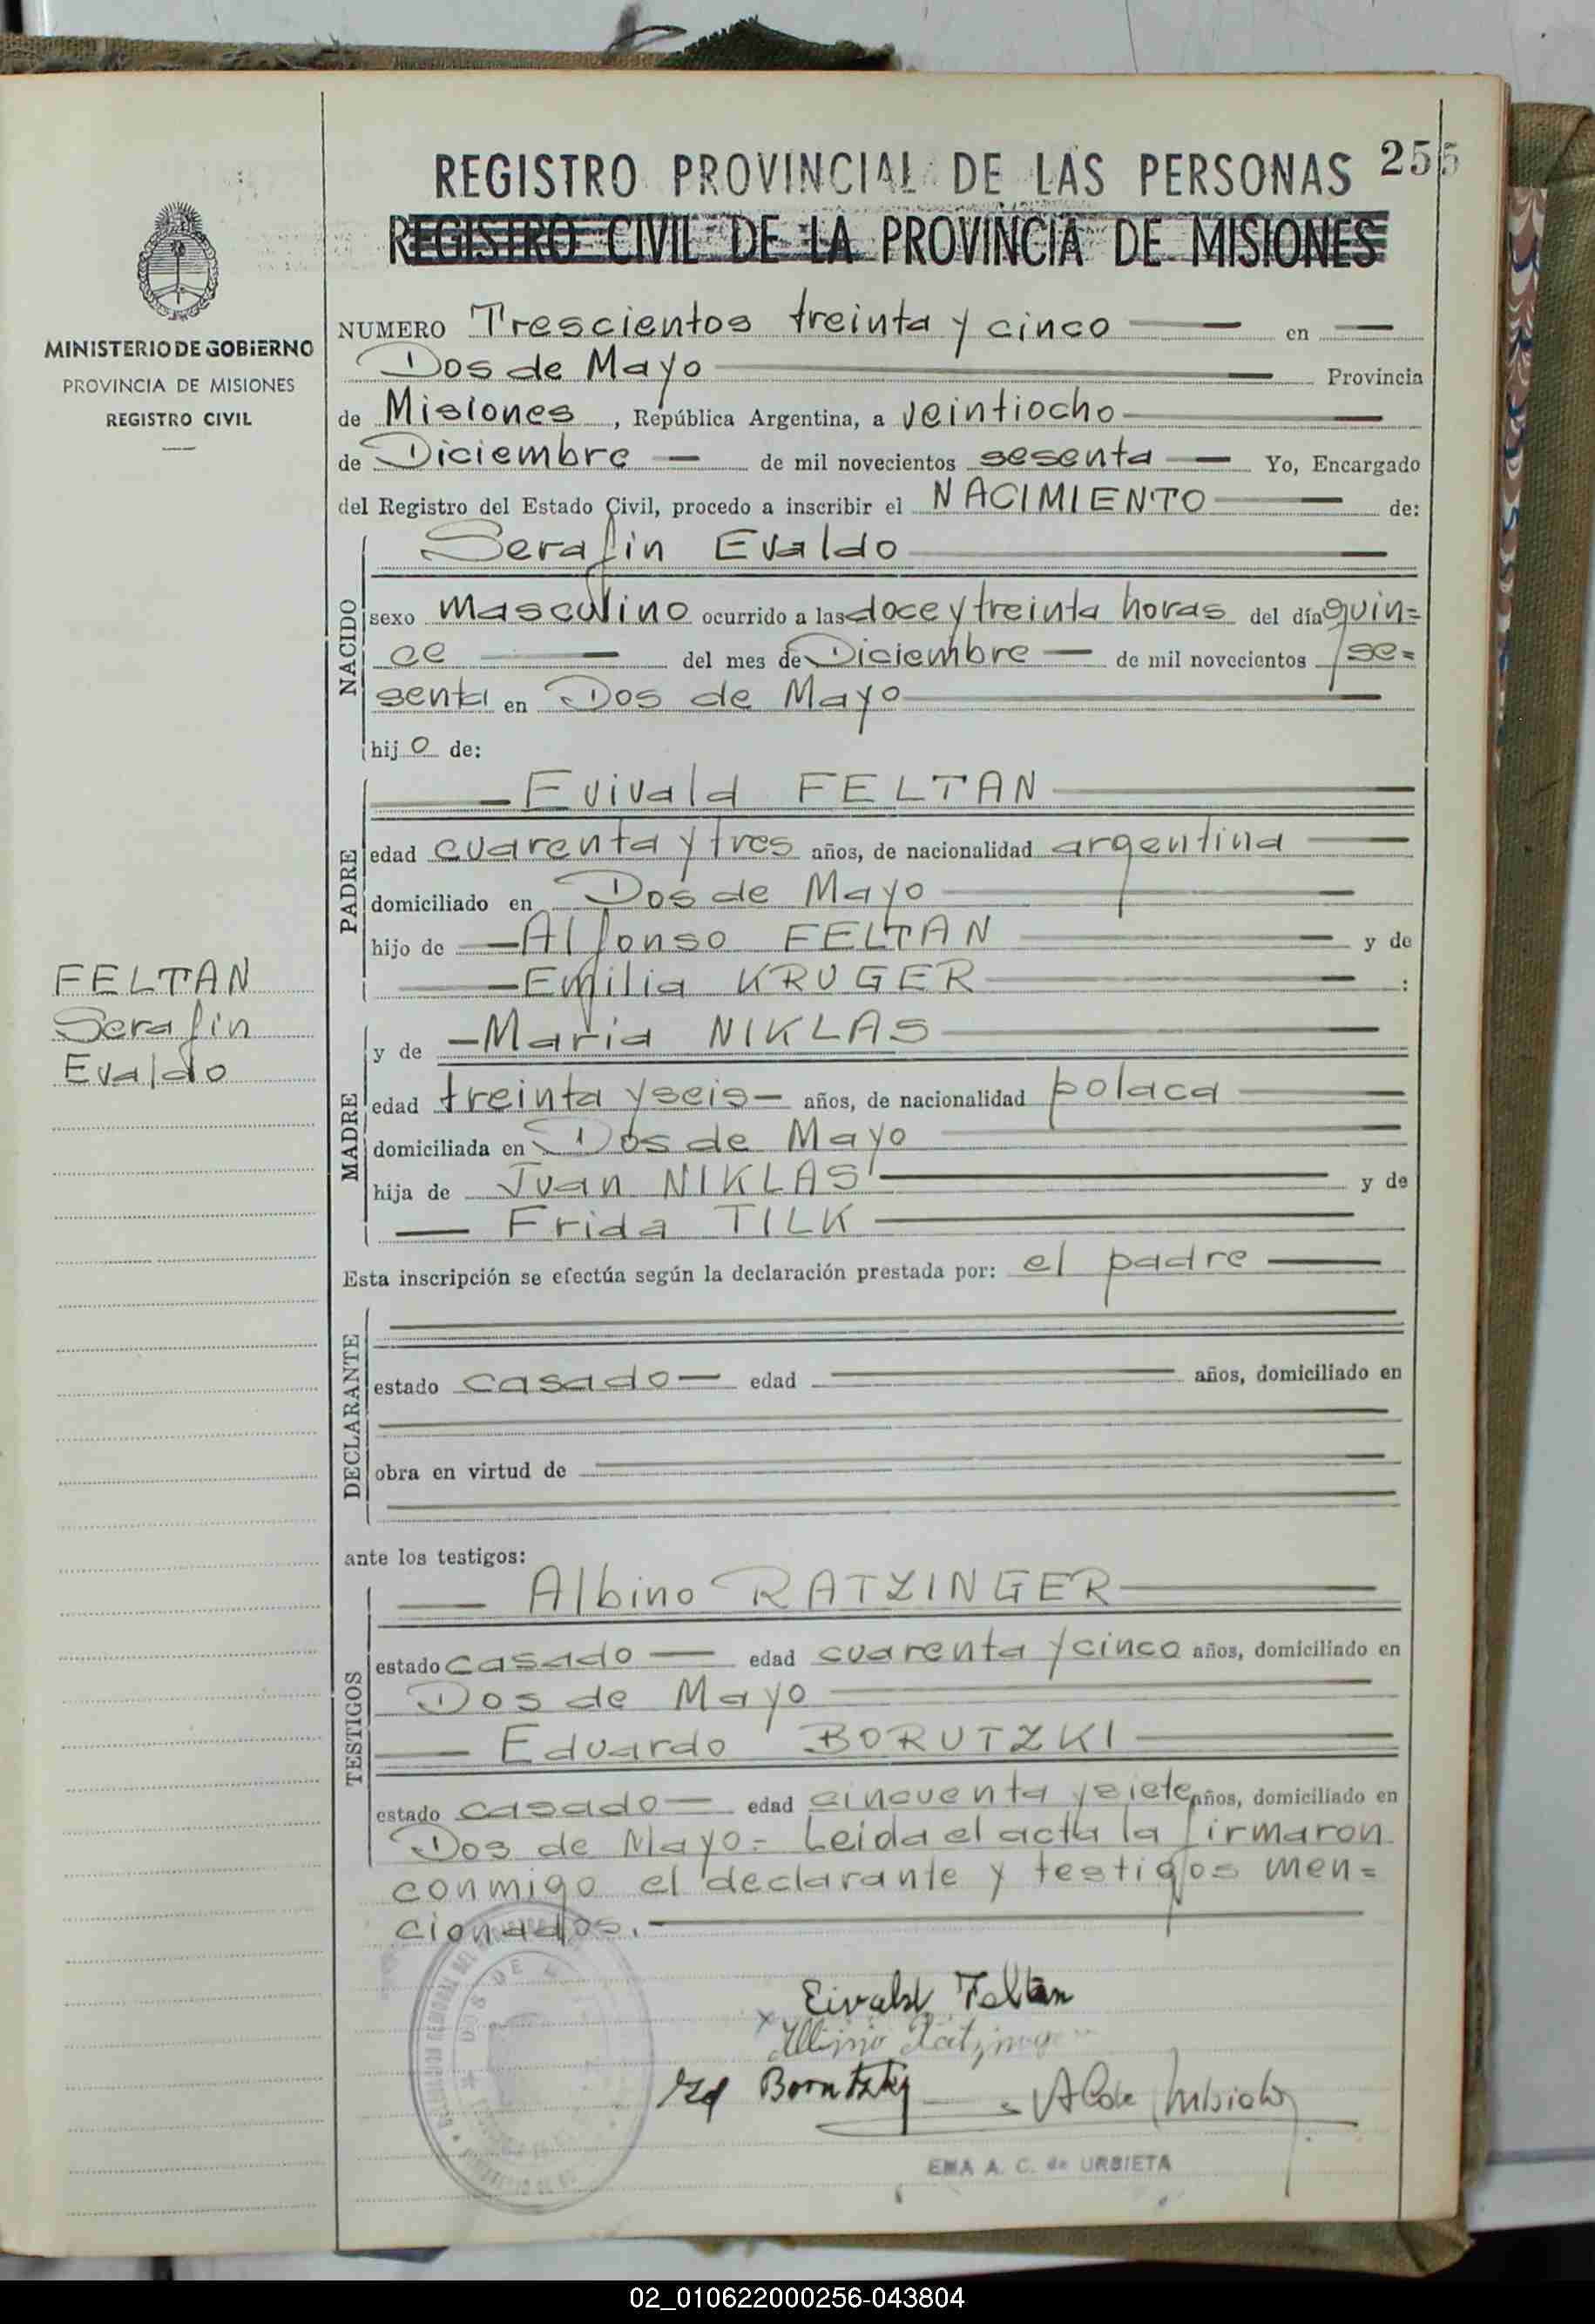 REGISTRO PROVINCIAL DE LAS PERSONAS 255
REGISTRO CIVIL DE LA PROVINCIA DE MISIONES
MINISTERIO DE GOBIERNO
PROVINCIA DE MISIONES
REGISTRO CIVIL
NUMERO Trescientos treinta y cinco en
Dos de Mayo Provincia
de Misiones, República Argentina, a veintiocho
de Diciembre de mil novecientos sesenta Yo, Encargado
del Registro del Estado Civil, procedo a inscribir el NACIMIENTO de:
NACIDO
Serafin Evaldo
sexo masculino ocurrido a las doce y treinta horas del día quin=
ce del mes de Diciembre de mil novecientos se=
senta en Dos de Mayo
hijo de:
PADRE
Evivald FELTAN
edad cuarenta y tres años, de nacionalidad argentina
domiciliado en Dos de Mayo
hijo de Alfonso FELTAN y de
Emilia KRUGER :
FELTAN
Serafin
Evaldo
MADRE
y de Maria NIKLAS
edad treinta y seis años, de nacionalidad polaca
domiciliada en Dos de Mayo
hija de Juan NIKLAS y de
Frida TILK
Esta inscripción se efectúa según la declaración prestada por: el padre
DECLARANTE
estado casado edad años, domiciliado en
obra en virtud de
ante los testigos:
TESTIGOS
Albino RATZINGER
estado casado edad cuarenta y cinco años, domiciliado en
Dos de Mayo
Eduardo BORUTZKI
estado casado edad cincuenta y siete años, domiciliado en
Dos de Mayo.= Leida el acta la firmaron
conmigo el declarante y testigos men=
cionados.
DOS DE
Eivald Feltan
Albino Ratzinger
Ed Borutzky
EMA A. C. de URBIETA
02_010622000256-043804